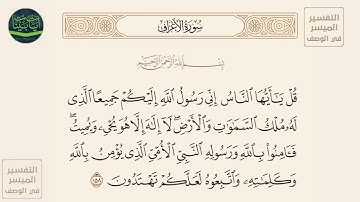 التفسير
الميسر
في الوصف
سُورَةُ الأَعْرَافِ
بِسْمِ اللَّهِ الرَّحْمَٰنِ الرَّحِيمِ
قُلْ يَٰٓأَيُّهَا ٱلنَّاسُ إِنِّي رَسُولُ ٱللَّهِ إِلَيْكُمْ جَمِيعًا ٱلَّذِي
لَهُۥ مُلْكُ ٱلسَّمَٰوَٰتِ وَٱلْأَرْضِۖ لَآ إِلَٰهَ إِلَّا هُوَ يُحْيِۦ وَيُمِيتُۖ
فَـَٔامِنُوا۟ بِٱللَّهِ وَرَسُولِهِ ٱلنَّبِيِّ ٱلْأُمِّيِّ ٱلَّذِي يُؤْمِنُ بِٱللَّهِ
وَكَلِمَٰتِهِۦ وَٱتَّبِعُوهُ لَعَلَّكُمْ تَهْتَدُونَ ١٥٨
التفسير
الميسر
في الوصف